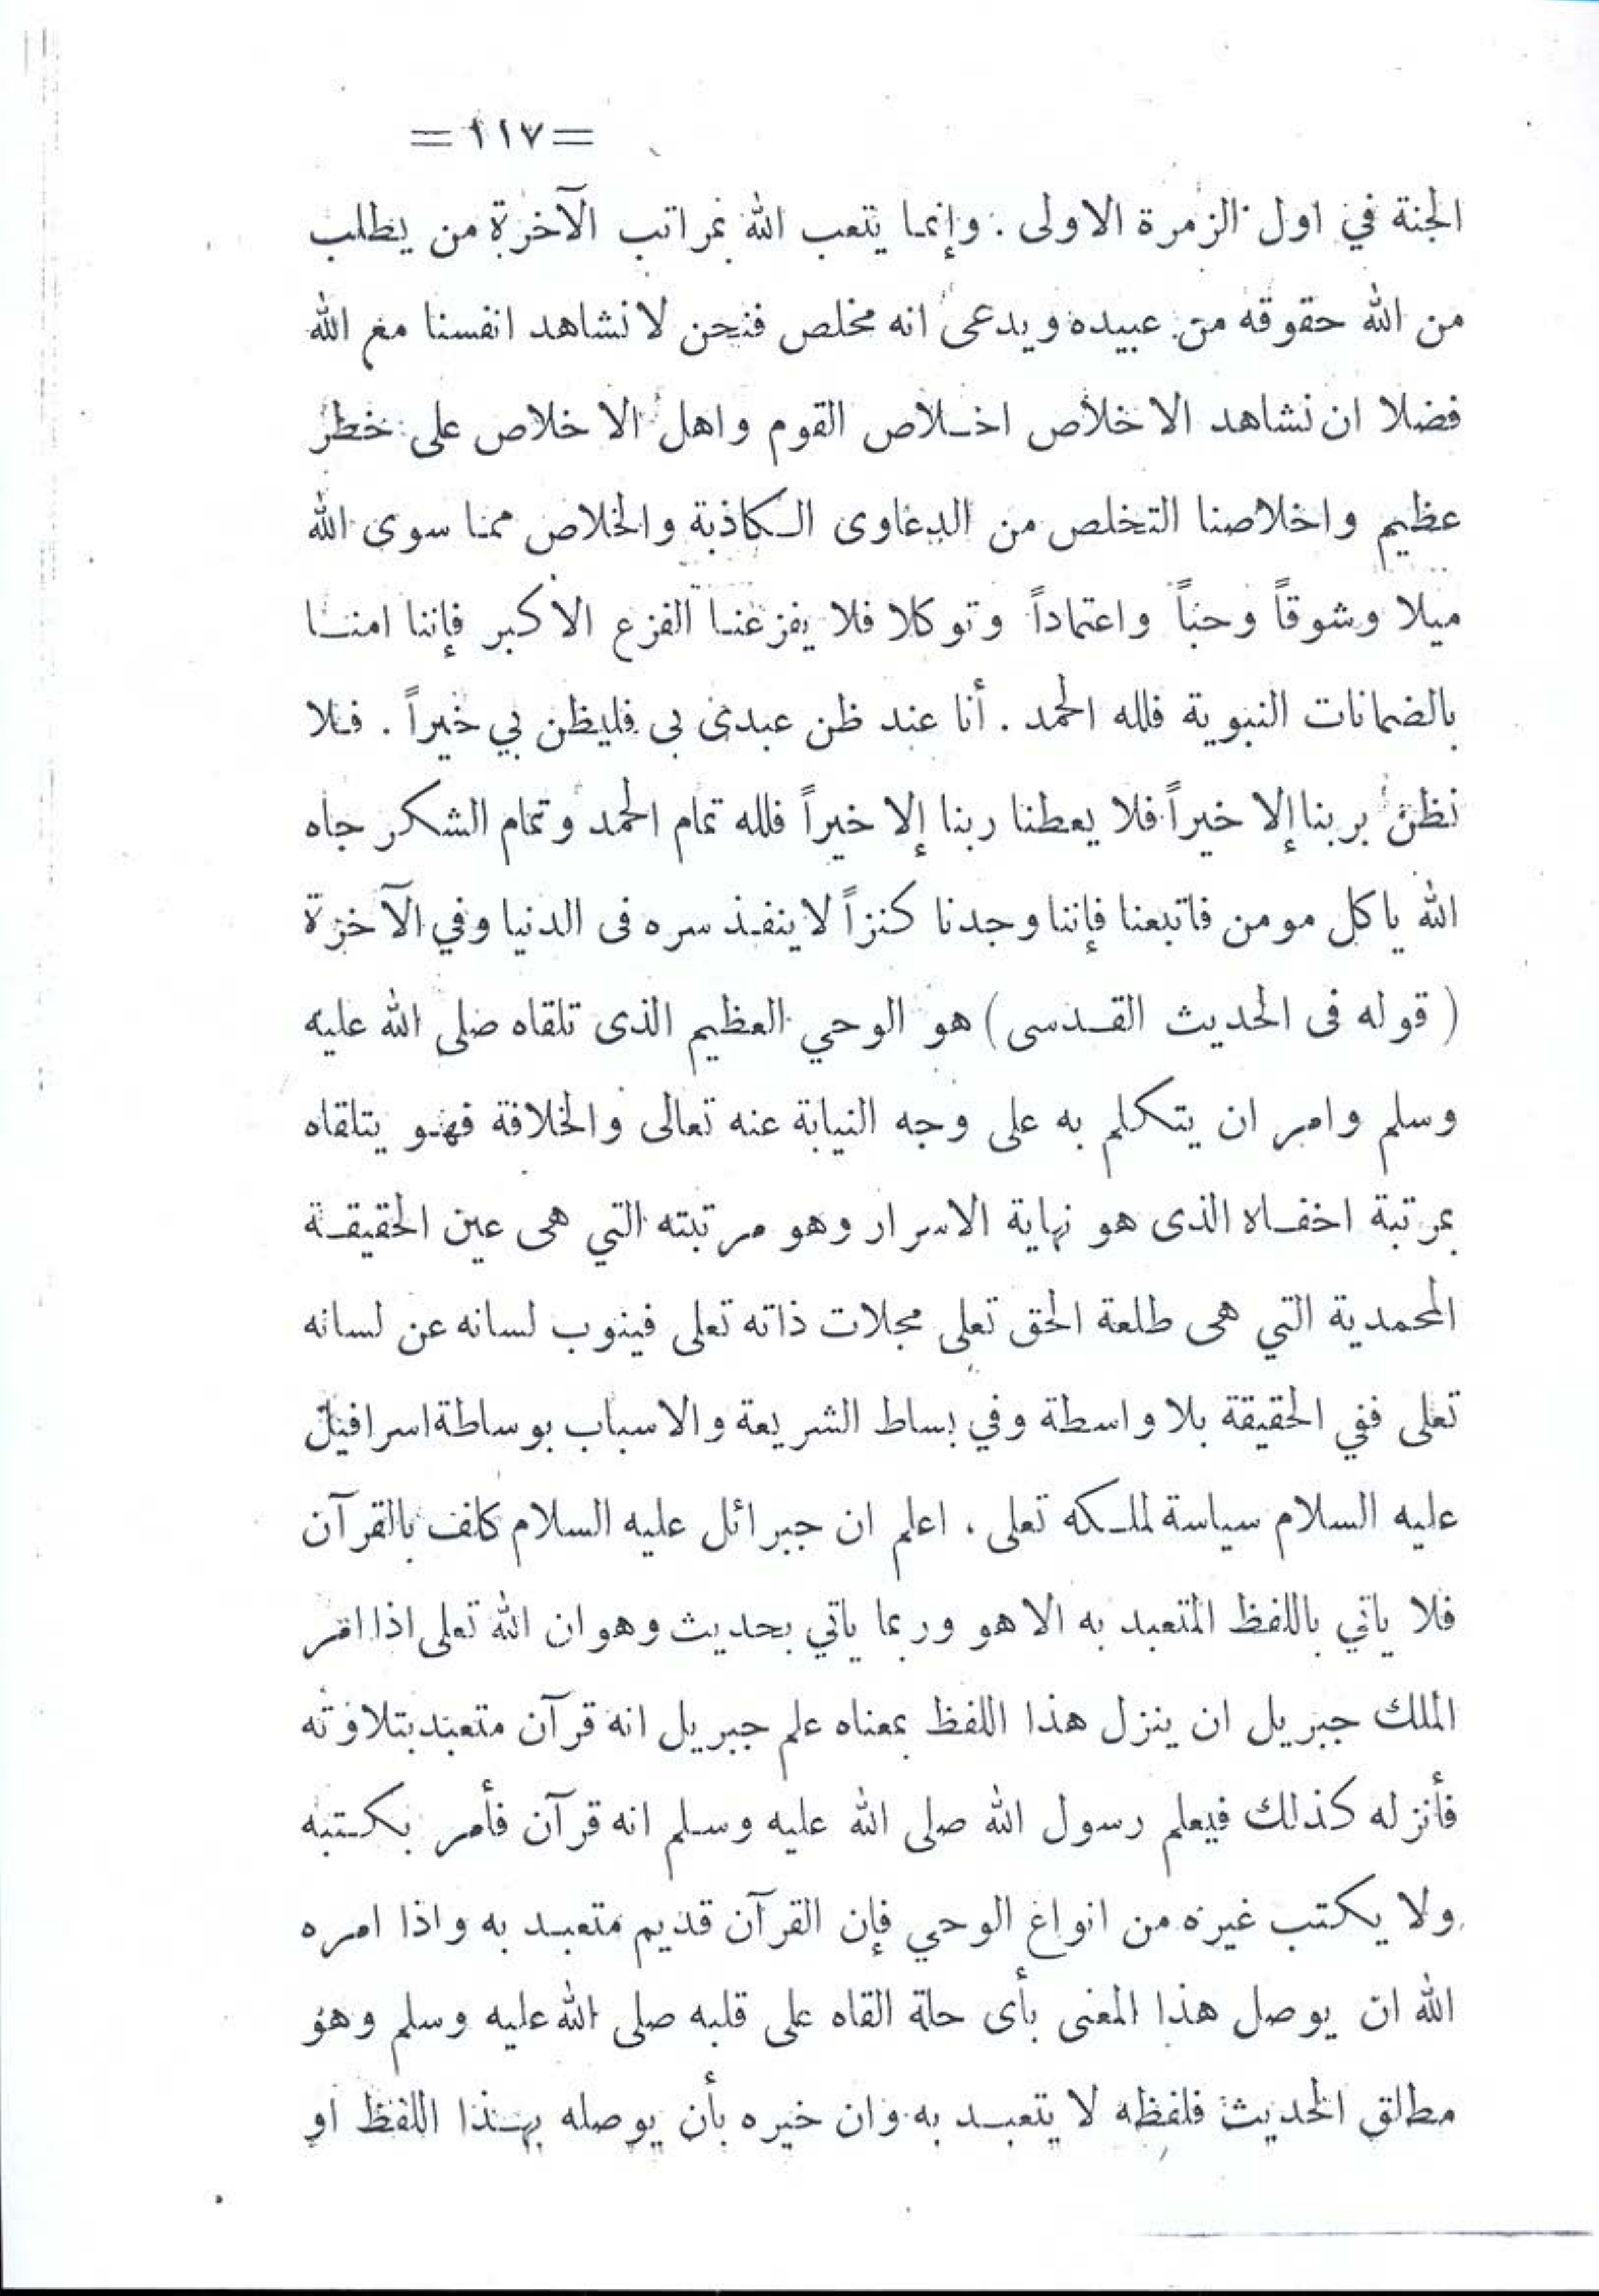 = ١١٧ =
الجنة في اول الزمرة الاولى . وإنما يتعب الله بمراتب الآخرة من يطلب
من الله حقوقه من عبيده ويدعى انه مخلص فنحن لا نشاهد انفسنا مع الله
فضلا ان نشاهد الاخلاص اخلاص القوم واهل الاخلاص على خطر
عظيم واخلاصنا التخلص من الدعاوى الكاذبة والخلاص مما سوى الله
ميلا وشوقاً وحباً واعتماداً وتوكلا فلا يفزعنا الفزع الاكبر فإننا امنا
بالضمانات النبوية فلله الحمد . أنا عند ظن عبدى بى فليظن بي خيراً . فلا
نظن بربنا إلا خيراً فلا يعطنا ربنا إلا خيراً فلله تمام الحمد وتمام الشكر جاه
الله ياكل مومن فاتبعنا فإننا وجدنا كنزاً لاينفذ سره فى الدنيا وفي الآخرة
( قوله فى الحديث القدسى ) هو الوحي العظيم الذى تلقاه صلى الله عليه
وسلم وامر ان يتكلم به على وجه النيابة عنه تعالى والخلافة فهو يتلقاه
بمرتبة اخفاه الذى هو نهاية الاسرار وهو مرتبته التي هى عين الحقيقة
المحمدية التي هى طلعة الحق تعلى مجلات ذاته تعلى فينوب لسانه عن لسانه
تعلى ففي الحقيقة بلا واسطة وفي بساط الشريعة والاسباب بوساطة اسرافيل
عليه السلام سياسة لملكه تعلى ، اعلم ان جبرائل عليه السلام كلف بالقرآن
فلا ياتي باللفظ المتعبد به الا هو وربما ياتي بحديث وهو ان الله تعلى اذا امر
الملك جبريل ان ينزل هذا اللفظ بمعناه علم جبريل انه قرآن متعبد بتلاوته
فأنزله كذلك فيعلم رسول الله صلى الله عليه وسلم انه قرآن فأمر بكتبه
ولا يكتب غيره من انواع الوحي فإن القرآن قديم متعبد به واذا امره
الله ان يوصل هذا المعنى بأى حلة القاه على قلبه صلى الله عليه وسلم وهو
مطالق الحديث فلفظه لا يتعبد به وان خيره بأن يوصله بهذا اللفظ او